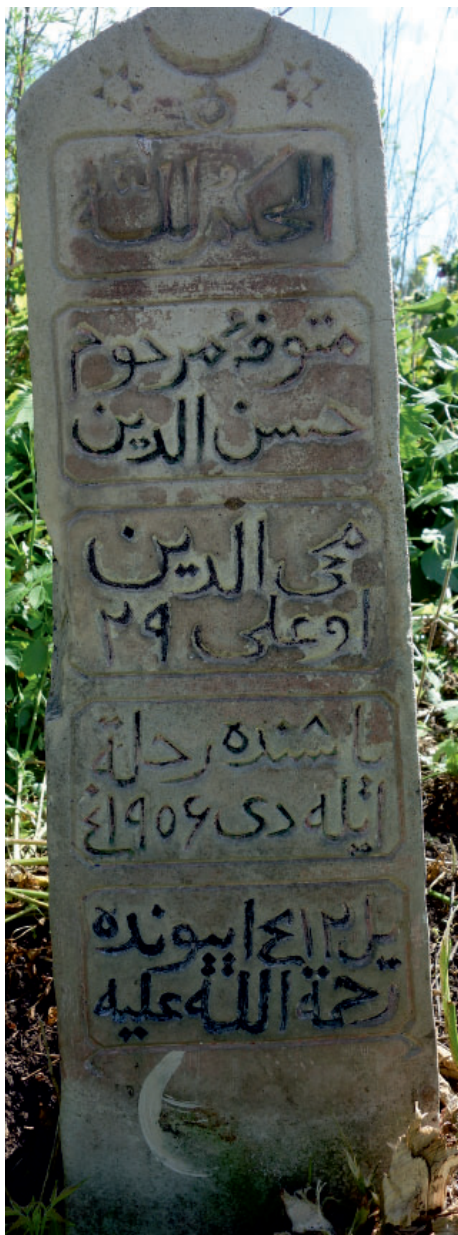 الحكم لله
متوفئ مرحوم
حسن الدين
محى الدين
اوغلى ٢٩
ياشنده رحلة
ايله دى ١٩٠٦نچى
يل ١٢نچى اييونده
رحمة الله عليه